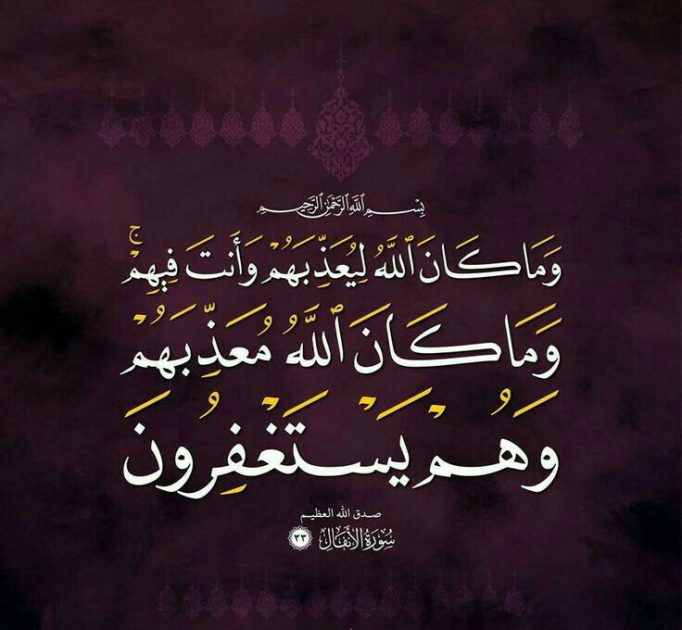 بِسْمِ ٱللَّهِ ٱلرَّحْمَٰنِ ٱلرَّحِيمِ
وَمَا كَانَ ٱللَّهُ لِيُعَذِّبَهُمْ وَأَنتَ فِيهِمْ ۚ
وَمَا كَانَ ٱللَّهُ مُعَذِّبَهُمْ
وَهُمْ يَسْتَغْفِرُونَ
صدق الله العظيم
سُورَةُ الأَنفَالِ ٣٣